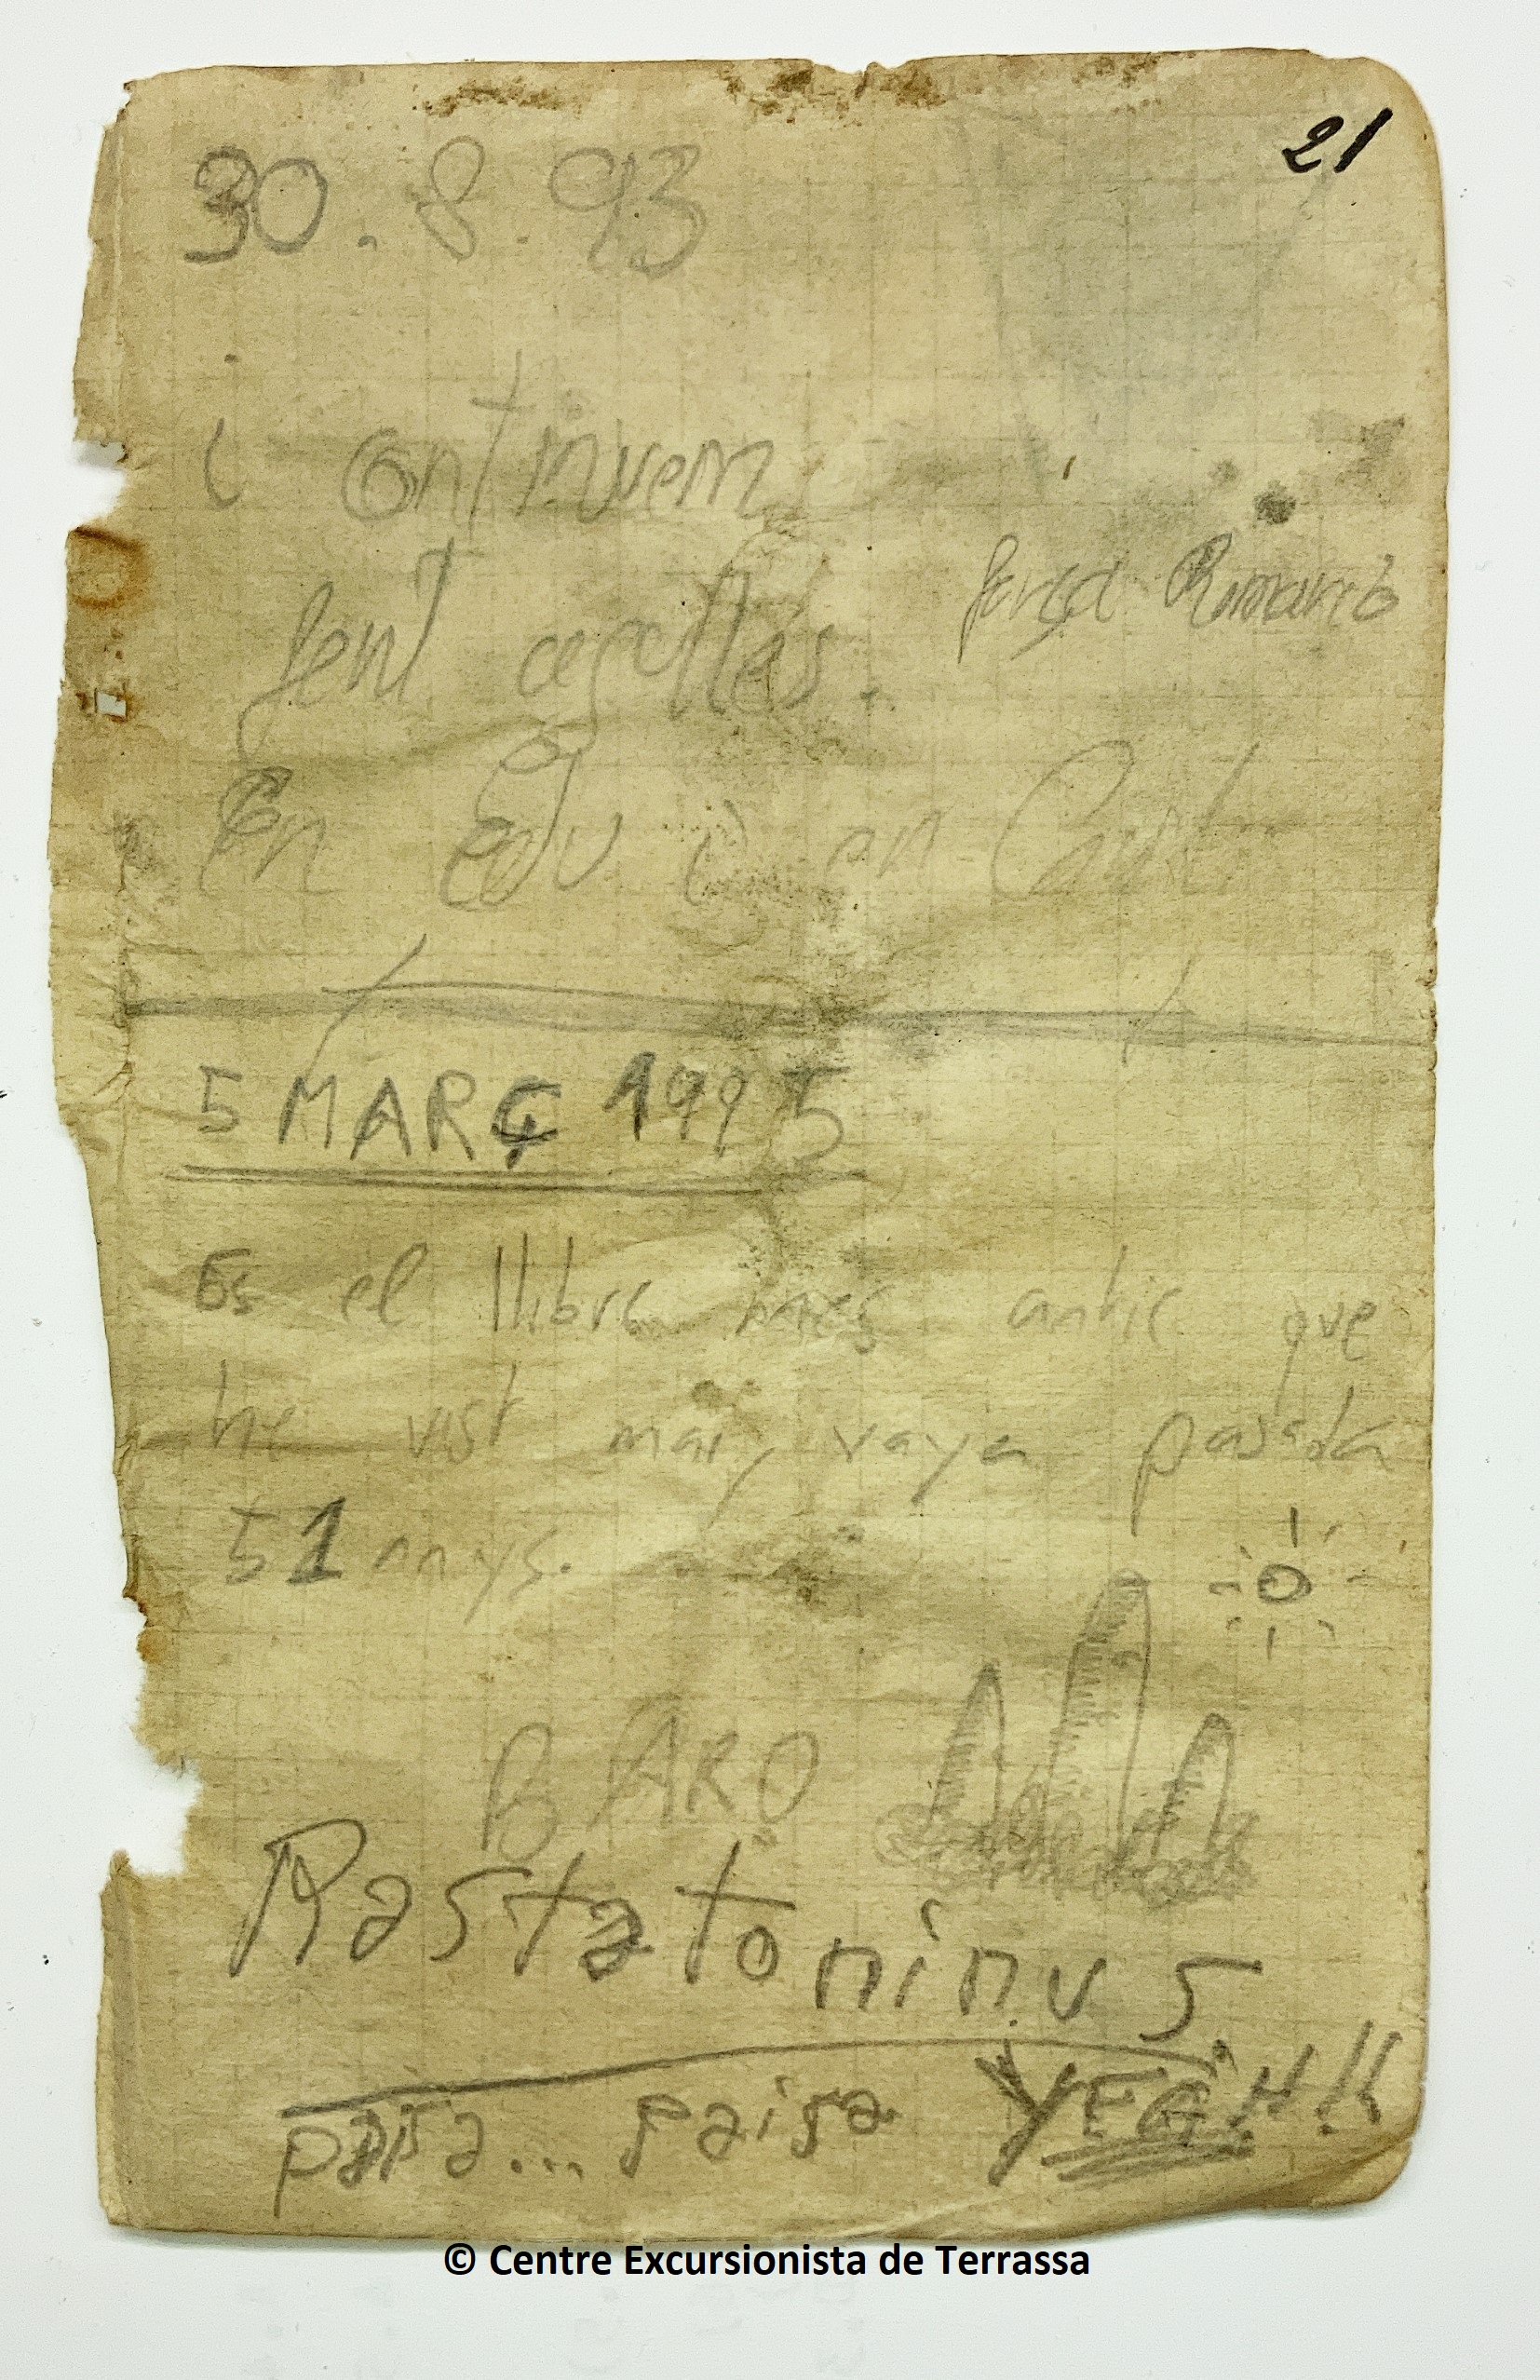 21
30.8.93
i continuem
fent cegalles.
força Romario
En Edu i en
5 MARÇ 1995
Es el llibre mes antic que
he vist mai, vaya pasada
51 anys.
BARO
Rastatoninus
paisa... paisa YEAH!!
© Centre Excursionista de Terrassa